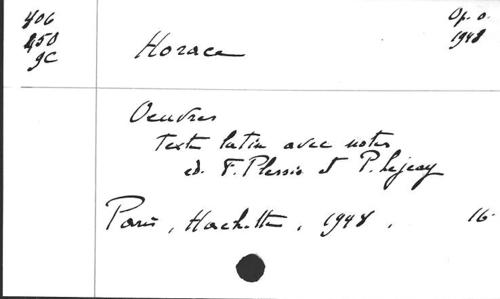 406
450
gc
Op. o.
1948
Horace
Oeuvres
Texte latin avec notes
ed. F. Plessis et P. Lejay
Paris, Hachette, 1948, 16